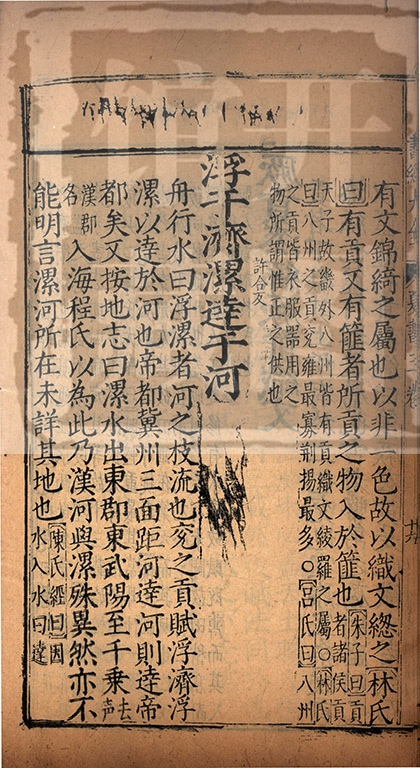 有文錦綺之屬也以非一色故以織文緫之林氏
曰有貢又有篚者所貢之物入於篚也朱子曰貢者諸侯貢
天子故畿外八州皆有貢織文綾羅之屬〇林氏
曰八州之貢兖雍最寡荆揚最多〇吕氏曰八州
之貢皆衣服器用之
物所謂惟正之供也
浮于濟漯達于河
許合反
舟行水曰浮漯者河之枝流也兖之貢賦浮濟浮
漯以達於河也帝都冀州三面距河達河則達帝
都矣又按地志曰漯水出東郡東武陽至千乗去聲
漢郡名入海程氏以為此乃漢河與漯殊異然亦不
能明言漯河所在未詳其地也陳氏經曰因水入水曰達